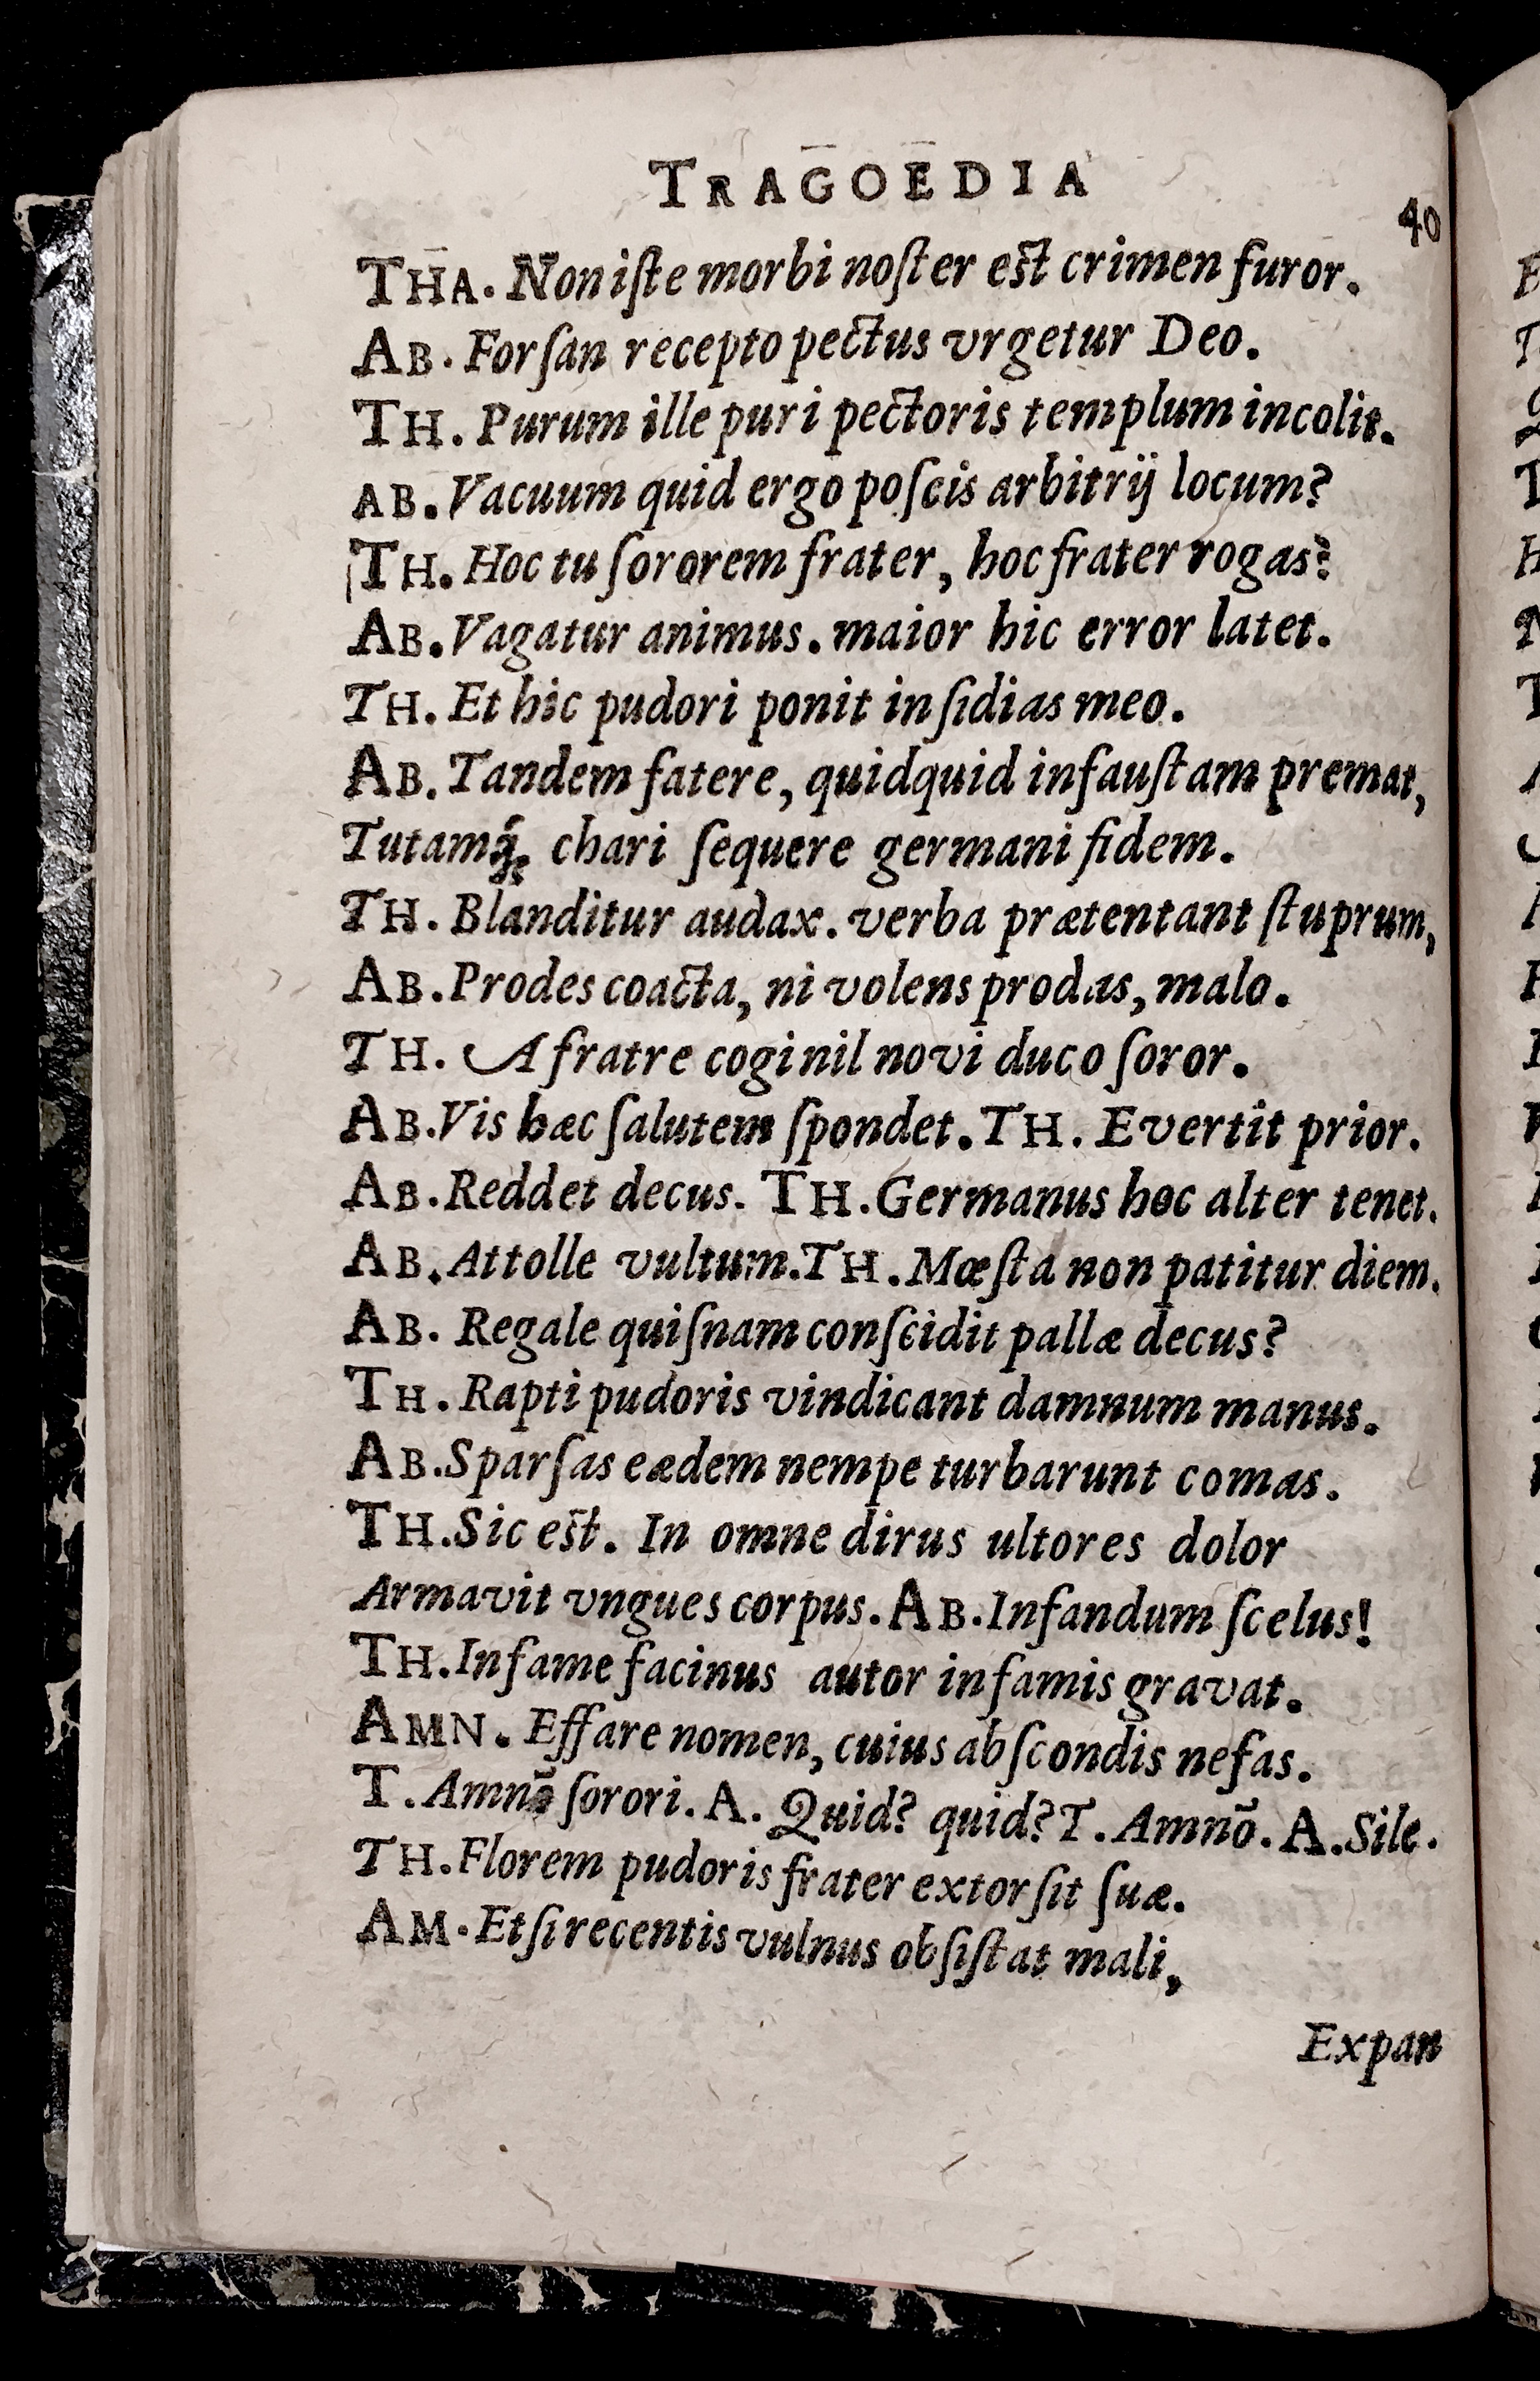 TRAGOEDIA
40
THA. Non iſte morbi noſter eſt crimen furor.
AB. Forſan recepto pectus vrgetur Deo.
TH. Purum ille puri pectoris templum incolit.
AB. Vacuum quid ergo poſcis arbitrij locum?
TH. Hoc tu ſororem frater, hoc frater rogas?
AB. Vagatur animus. maior hic error latet.
TH. Et hic pudori ponit inſidias meo.
AB. Tandem fatere, quidquid infauſtam premat,
Tutamq́; chari ſequere germani fidem.
TH. Blanditur audax. verba prætentant ſtuprum,
AB. Prodes coacta, ni volens prodas, malo.
TH. A fratre cogi nil novi duco ſoror.
AB. Vis hæc ſalutem ſpondet. TH. Evertit prior.
AB. Reddet decus. TH. Germanus hoc alter tenet.
AB. Attolle vultum. TH. Mœſta non patitur diem.
AB. Regale quiſnam conſcidit pallæ decus?
TH. Rapti pudoris vindicant damnum manus.
AB. Sparſas eædem nempe turbarunt comas.
TH. Sic eſt. In omne dirus ultores dolor
Armavit vngues corpus. AB. Infandum ſcelus!
TH. Infame facinus autor infamis gravat.
AMN. Effare nomen, cuius abſcondis nefas.
T. Amnō ſorori. A. Quid? quid? T. Amnō. A. Sile.
TH. Florem pudoris frater extorſit ſuæ.
AM. Etſi recentis vulnus obſiſtat mali,
Expan